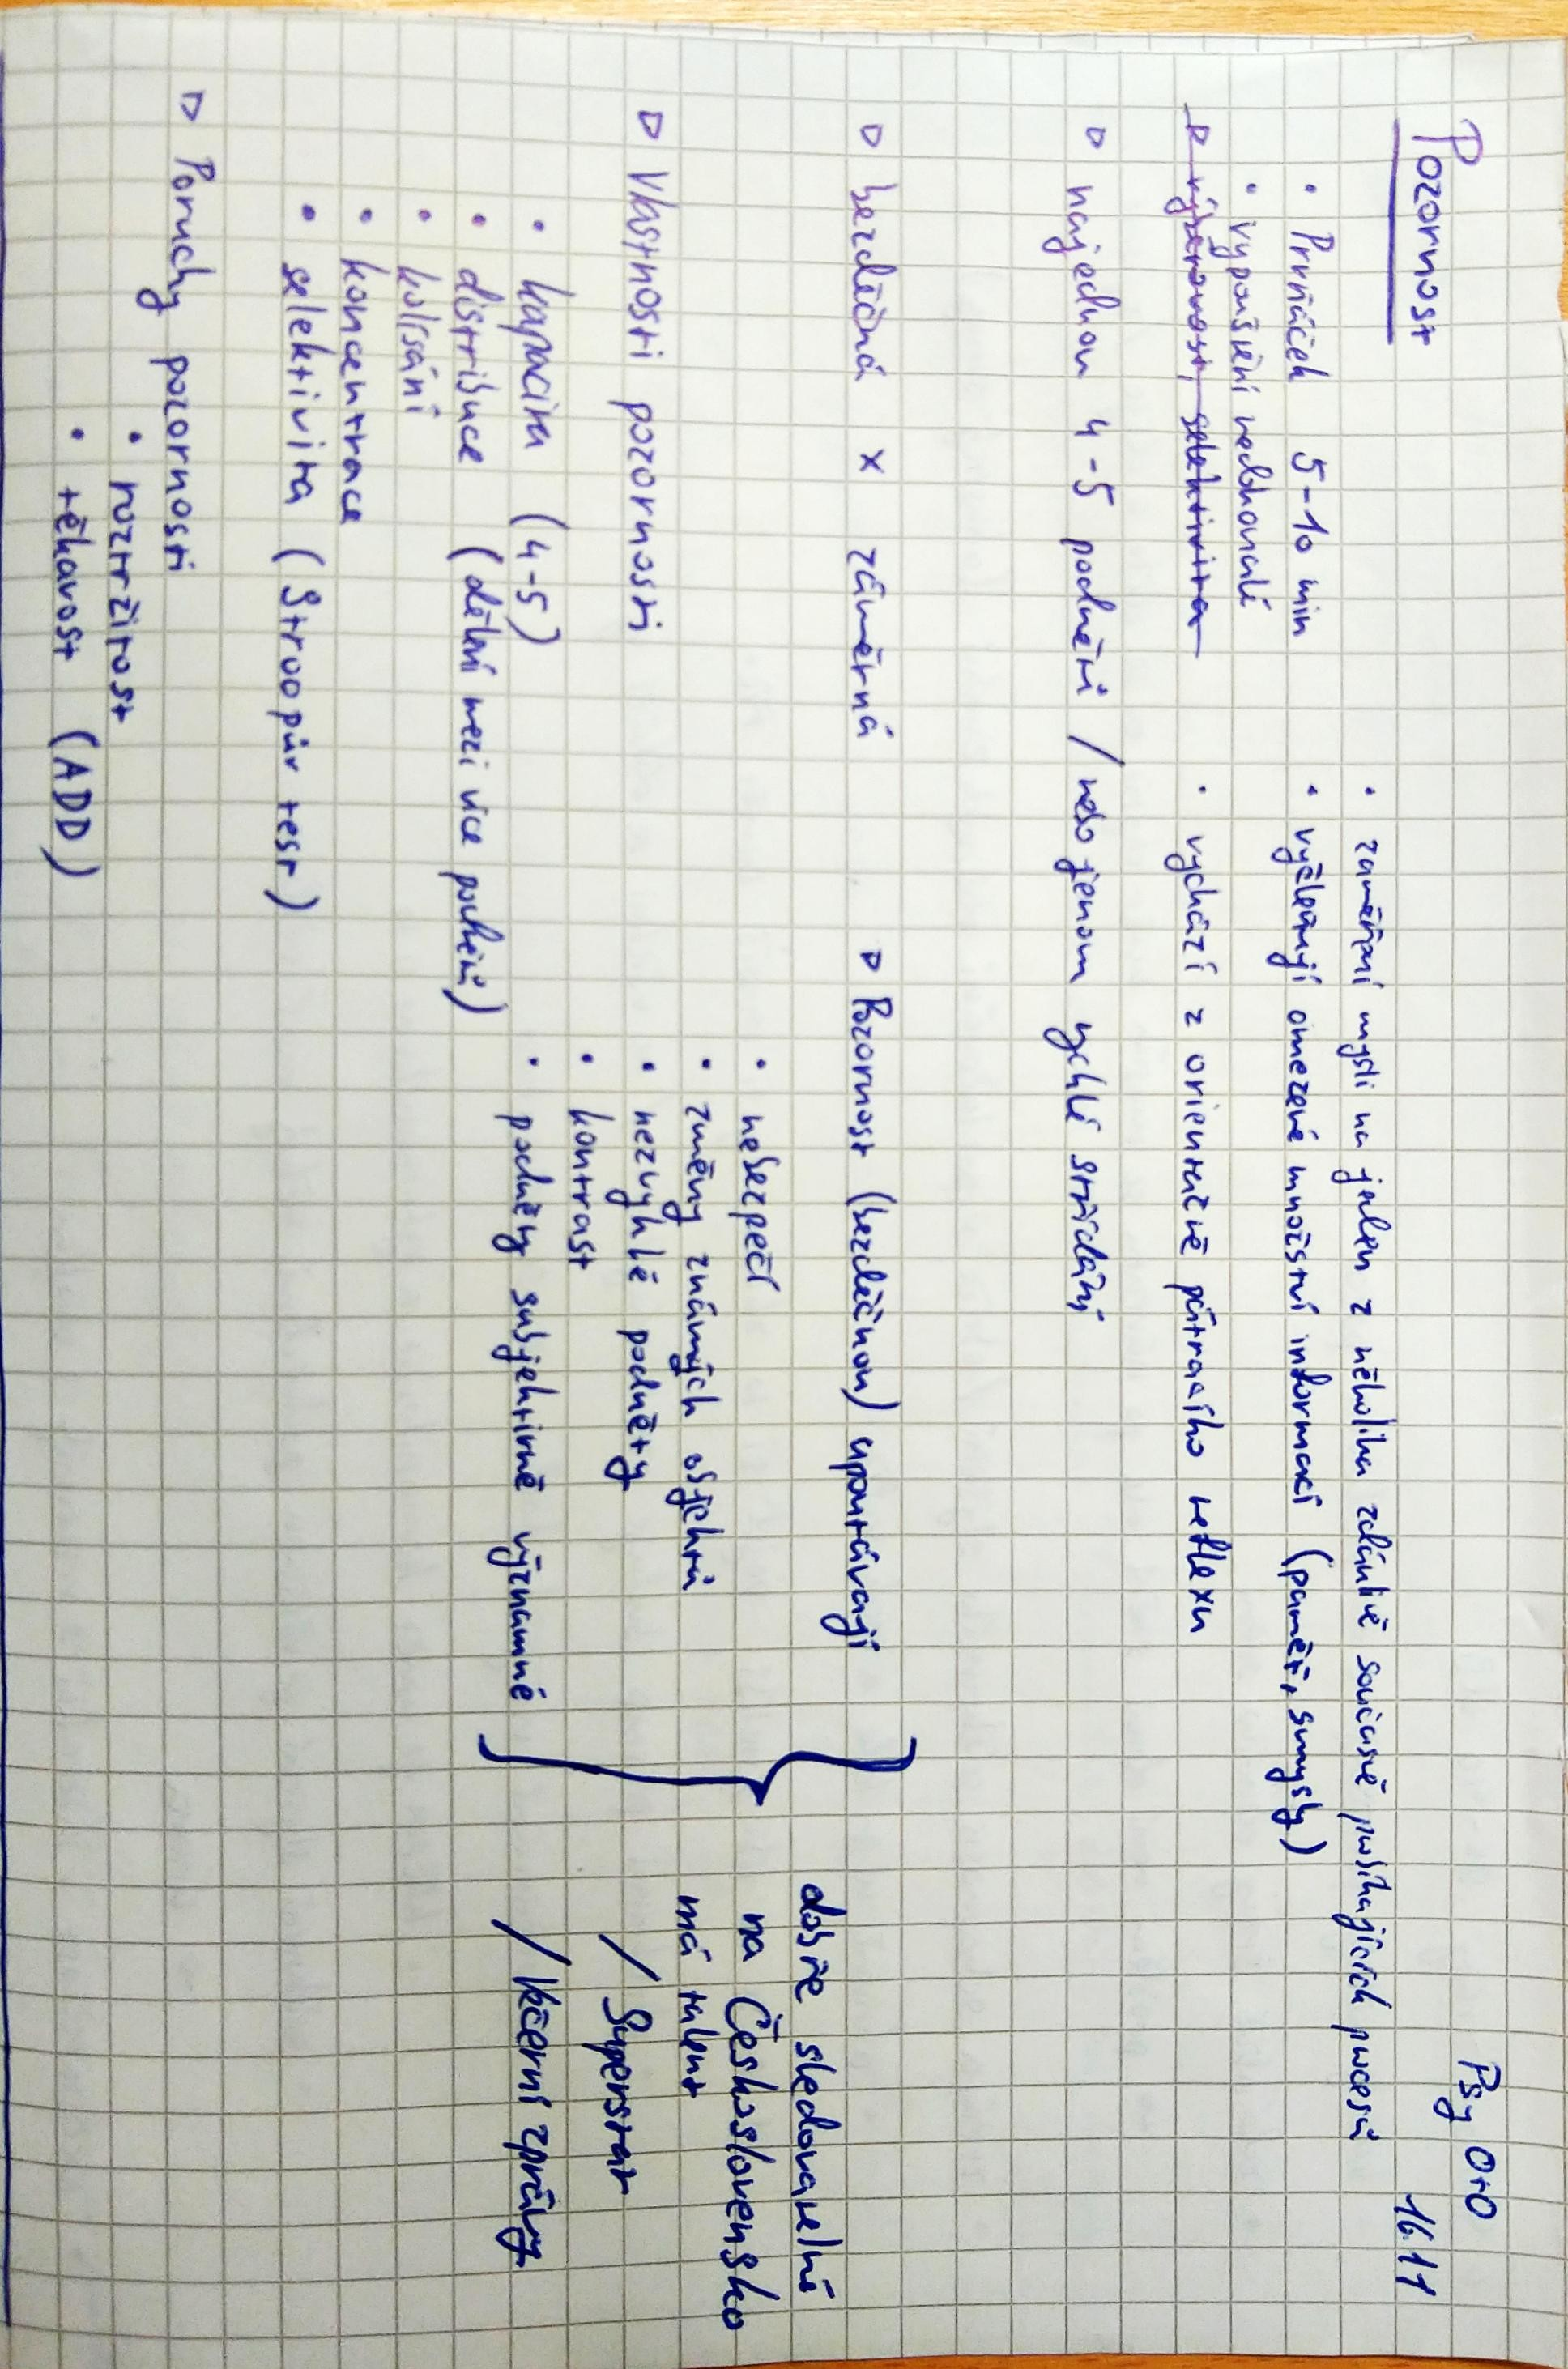 Psy OtO
16.11
Pozornost
• zaměření mysli na jeden z několika zdánlivě současně probíhajících procesů
• Prvňáček 5-10 min
• vyčleňují omezené množství informací (paměť, smysly)
• vypouštění nedokonalé
▷ výběrovost, selektivita
• vychází z orientačně pátracího reflexu
▷ najednou 4-5 podnětů / nebo jenom rychlé střídání
▷ bezděčná x záměrná
▷ Pozornost (bezděčnou) upoutávají
• nebezpečí
• změny známých objektů
• nezvyklé podněty
• kontrast
• podněty subjektivně významné
dobře sledovatelné
na Československo
má talent
/ Superstar
/ Večerní zprávy
▷ Vlastnosti pozornosti
• kapacita (4-5)
• distribuce (dělení mezi více podnětů)
• kolísání
• koncentrace
• selektivita (Stroopův test)
▷ Poruchy pozornosti
• roztržitost
• těkavost (ADD)